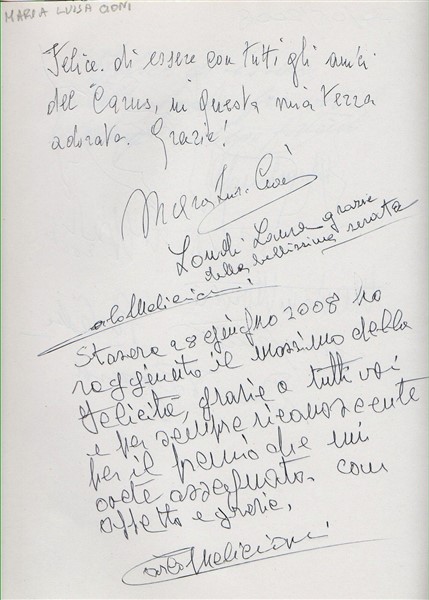 MARIA LUISA CIONI
Felice di essere con tutti gli amici
del "Carus, in questa mia terra
adorata. Grazie!
Maria Luisa Cioni
Londi Laura grazie
della bellissima serata
Stasera 28 giugno 2008 ho
raggiunto il massimo della
felicità, grazie a tutti voi
e per sempre riconoscente
per il premio che mi
avete assegnato. con
affetto e grazie.